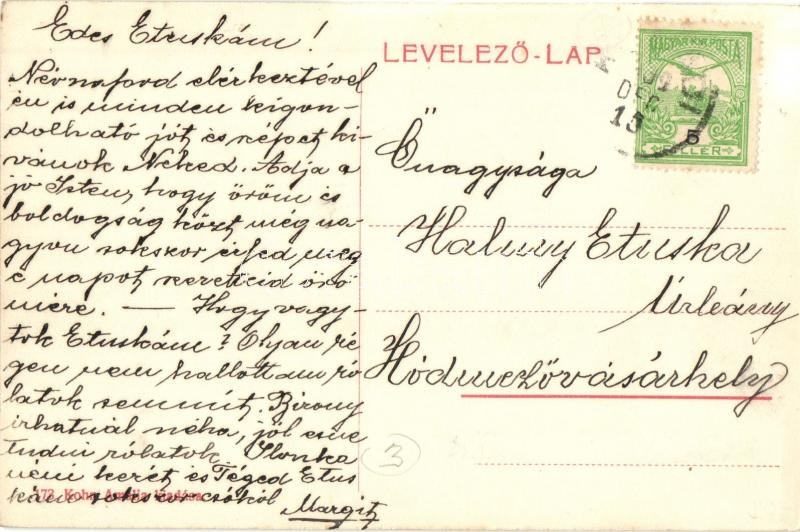 Edes Etuskám!
Névnapod elérkeztével
én is minden kigon-
dolható jót és szépet ki-
vánok Neked. Adja a
jó Isten, hogy öröm és
boldogság közt még na-
gyon sokszor érjed meg
e napot szeretteid örö-
mére. — Hogy vagy-
tok Etuskám? Olyan ré-
gen nem hallottam ró-
latok semmit. Bizony
irhatnál néha, jól esne
tudni rólatok. Ilonka
néni kezét és Téged Etus
kám sokszor csókol
Margit
173. Kohn Amália kiadása
LEVELEZŐ-LAP
MAGYAR KIR. POSTA
DEC
13
5
FILLÉR
Őnagysága
Etuska
Úrleány
Hódmezővásárhely
3